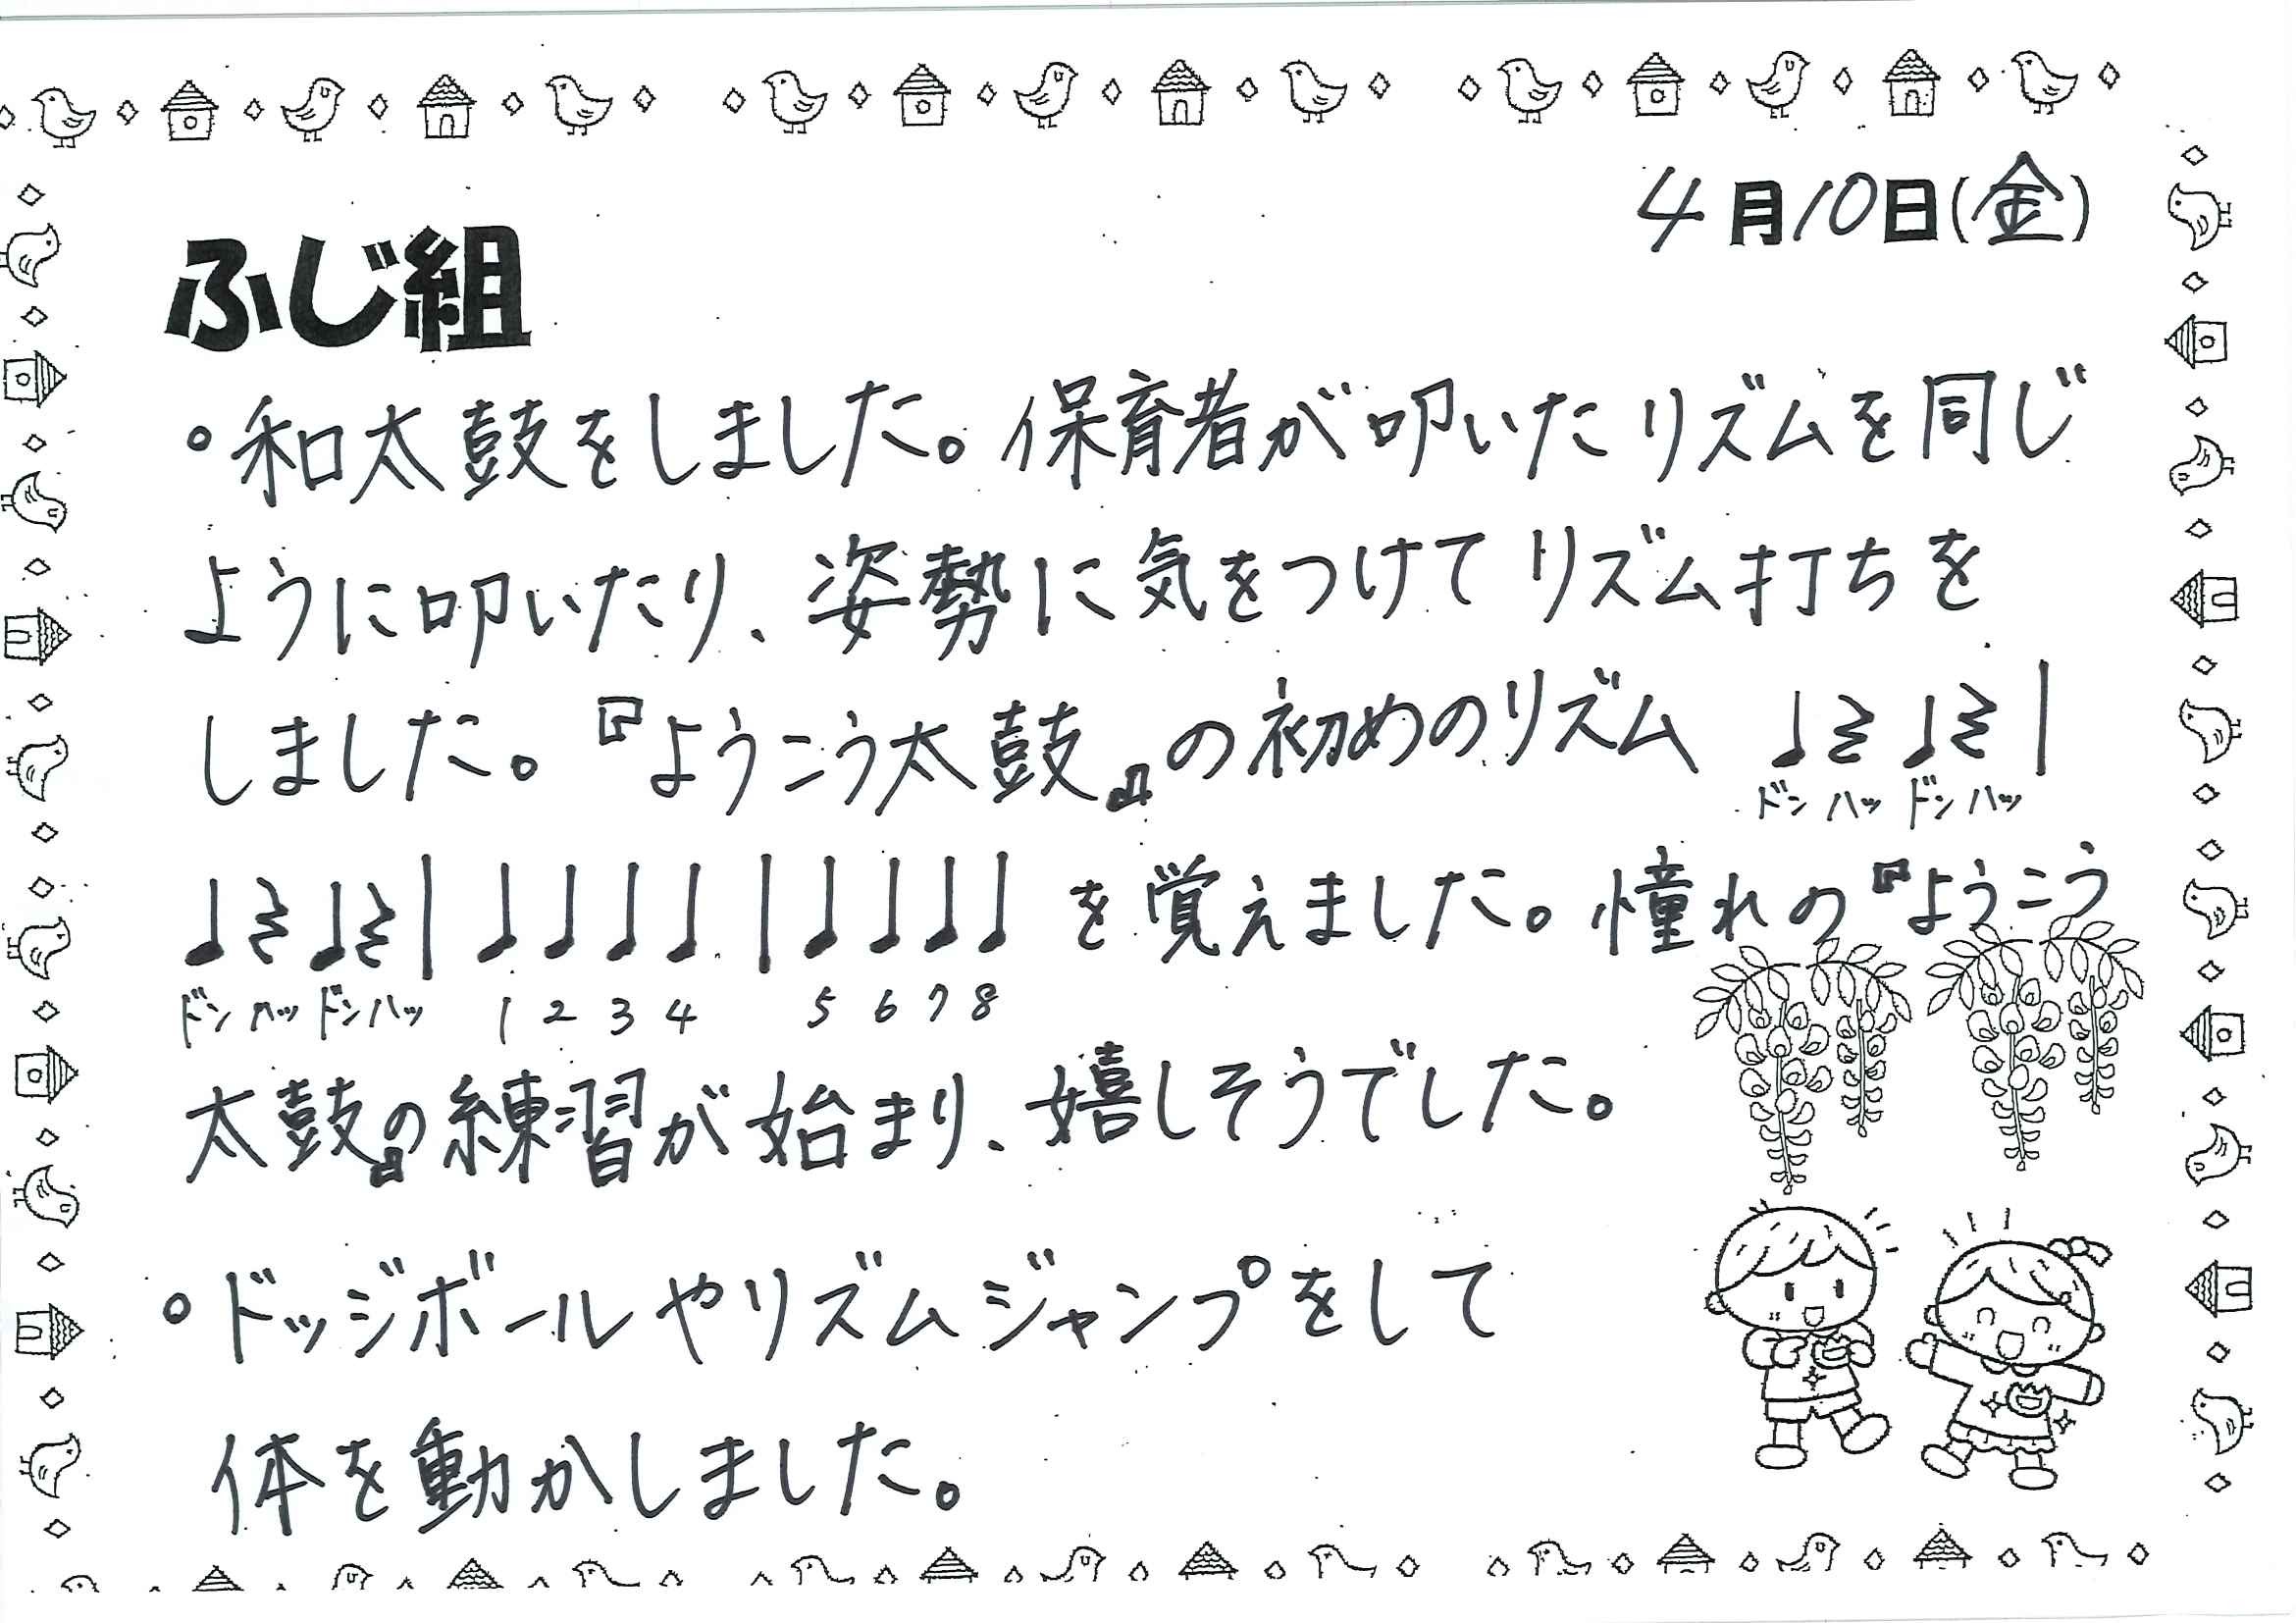 4月10日(金)
ふじ組
。和太鼓をしました。保育者が叩いたリズムを同じ
ように叩いたり、姿勢に気をつけてリズム打ちを
しました。『ようこう太鼓』の初めのリズム ♩𝄽♩𝄽|
ドン ハッ ドン ハッ
♩𝄽♩𝄽|♩♩♩♩|♩♩♩♩ を覚えました。憧れの『ようこう
ドン ハッ ドン ハッ 1 2 3 4 5 6 7 8
太鼓』の練習が始まり、嬉しそうでした。
。ドッジボールやリズムジャンプをして
体を動かしました。